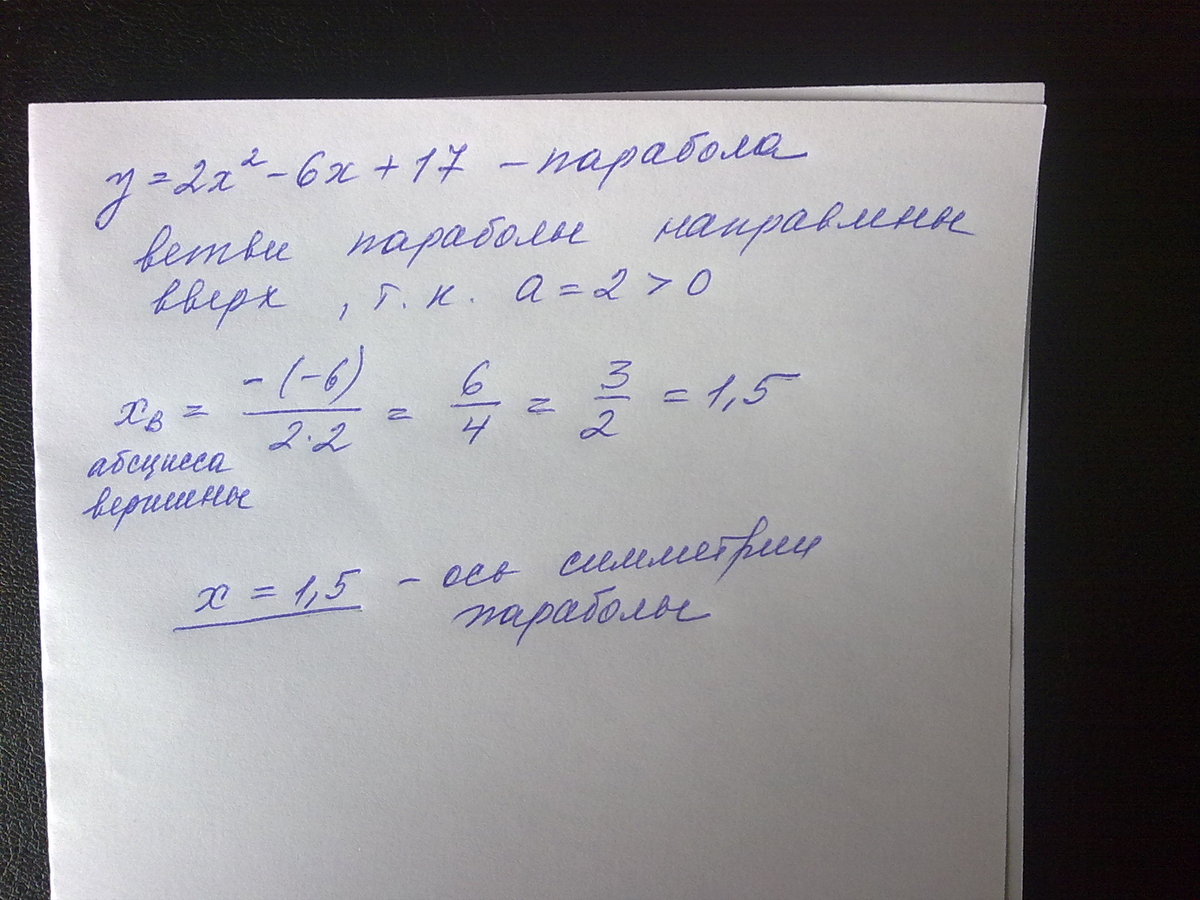 y = 2x² - 6x + 17 - парабола
ветви параболы направлены
вверх , т. к. a = 2 > 0
xв = -(-6)/2·2 = 6/4 = 3/2 = 1,5
абсцисса
вершины
x = 1,5 - ось симметрии
параболы